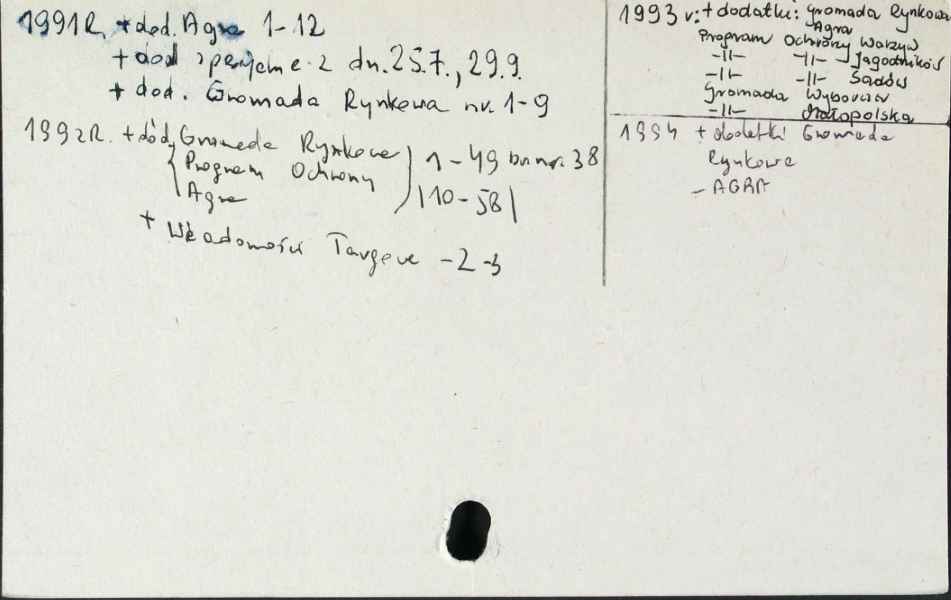 1991R. + dod. Agra 1-12
+ dod specjalne z dn. 25.7., 29.9.
+ dod. Gromada Rynkowa nr. 1-9
1992R. + dod, Gromada Rynkowa
Program Ochrony
Agra
1-49 br nr. 38
|10-58|
+ Wiadomości Targowe -2-3
1993 r: + dodatki: Gromada Rynkowa
Agra
Program Ochrony Warzyw
-||- -||- Jagodników
-||- -||- Sadów
Gromada Wyborcza
-||- Małopolska
1994 + dodatki Gromada
Rynkowa
- AGRA